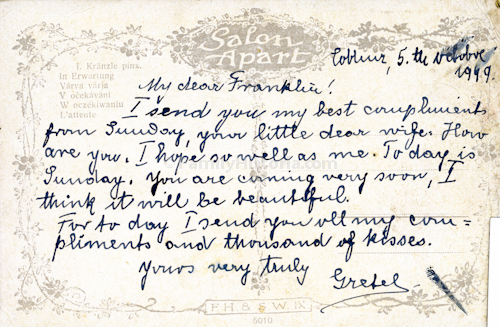 Salon
Apart
I. Kränzle pinx.
In Erwartung
Várva várja
V očekávání
W oczekiwaniu
L'attente
Coblenz, 5. the october
1919.
My dear Franklin!
I send you my best compliments
from Sunday, your little dear wife. How
are you, I hope so well as me. To day is
Sunday. You are coming very soon, I
think it will be beautiful.
For to day I send you all my com=
pliments and thousand of kisses.
Yours very truly
Gretel
F.H. & S.W. IX.
5010